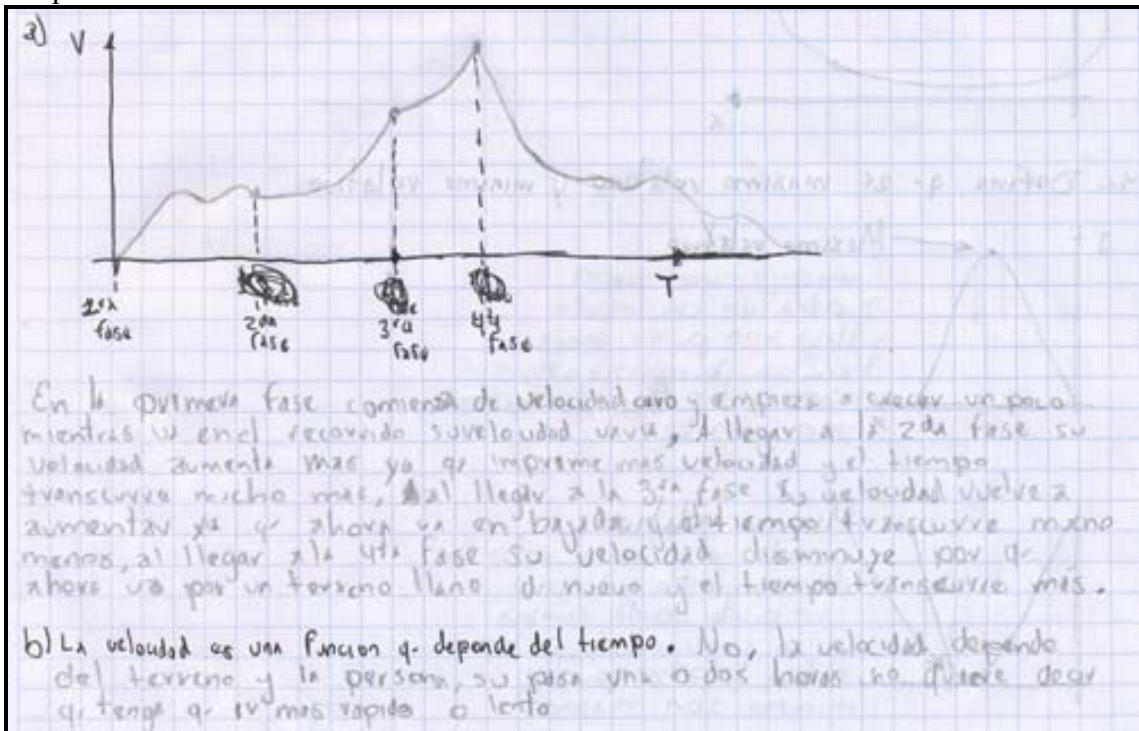 a) V
T
1ra fase
2da fase
3ra fase
4ta fase
En la primera fase comienza de velocidad cero y empieza a crecer un poco
mientras va en el recorrido su velocidad varia, Al llegar a la 2da fase su
velocidad aumenta mas ya q. imprime mas velocidad y el tiempo
transcurre mucho mas, al llegar a la 3ra fase su velocidad vuelve a
aumentar ya q. ahora va en bajada y el tiempo transcurre mucho
menos, al llegar a la 4ta fase su velocidad disminuye por q.
ahora va por un terreno llano de nuevo y el tiempo transcurre más.
b) La velocidad es una funcion q. depende del tiempo. No, la velocidad depende
del terreno y la persona, su pasa una o dos horas no quiere decir
q. tenga q. ir mas rapido o lento